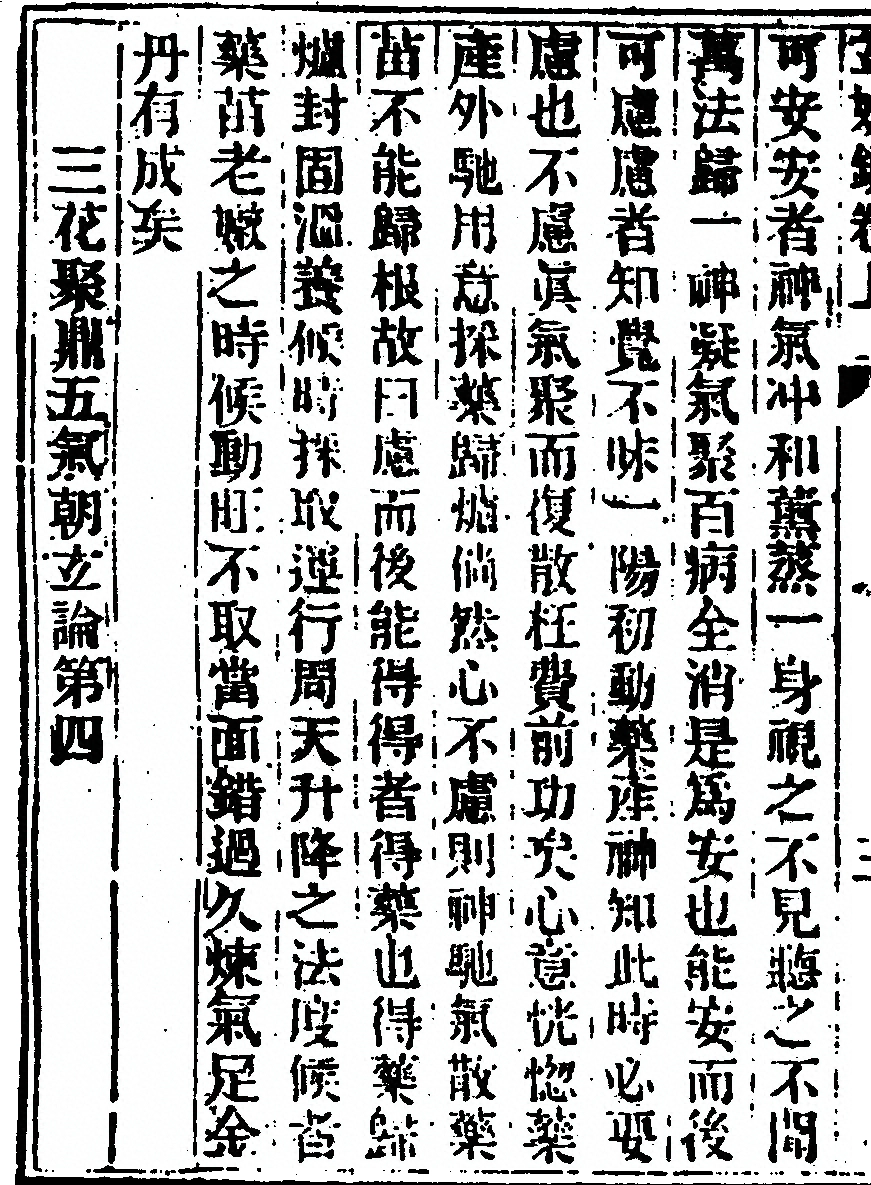 可安安者神氣冲和薰蒸一身視之不見聽之不聞
萬法歸一神凝氣聚百病全消是爲安也能安而後
可慮慮者知覺不昧一陽初動藥產神知此時必要
慮也不慮眞氣聚而復散枉費前功矣心意恍惚藥
產外馳用意採藥歸爐倘然心不慮則神馳氣散藥
苗不能歸根故曰慮而後能得得者得藥也得藥歸
爐封固溫養候時採取運行周天升降之法度候者
藥苗老嫩之時候動時不取當面錯過久煉氣足金
丹有成矣
三花聚鼎五氣朝立論第四